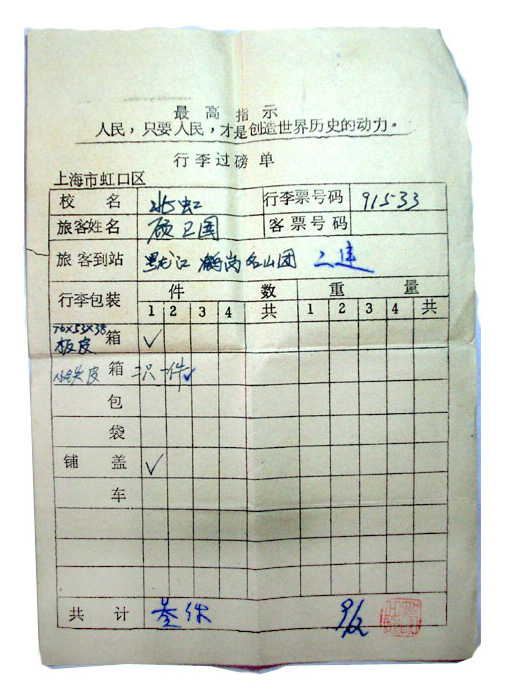 最高指示
人民，只要人民，才是创造世界历史的动力。
行李过磅单
上海市虹口区
校名 北虹 行李票号码 91533
旅客姓名 顾卫国 客票号码
旅客到站 黑龙江 名山团 二连
行李包装 件数 重量
1 2 3 4 共 1 2 3 4 共
76×53×38
板皮箱 ✓
皮箱 一件✓
包
袋
铺盖 ✓
车
共计 叁件